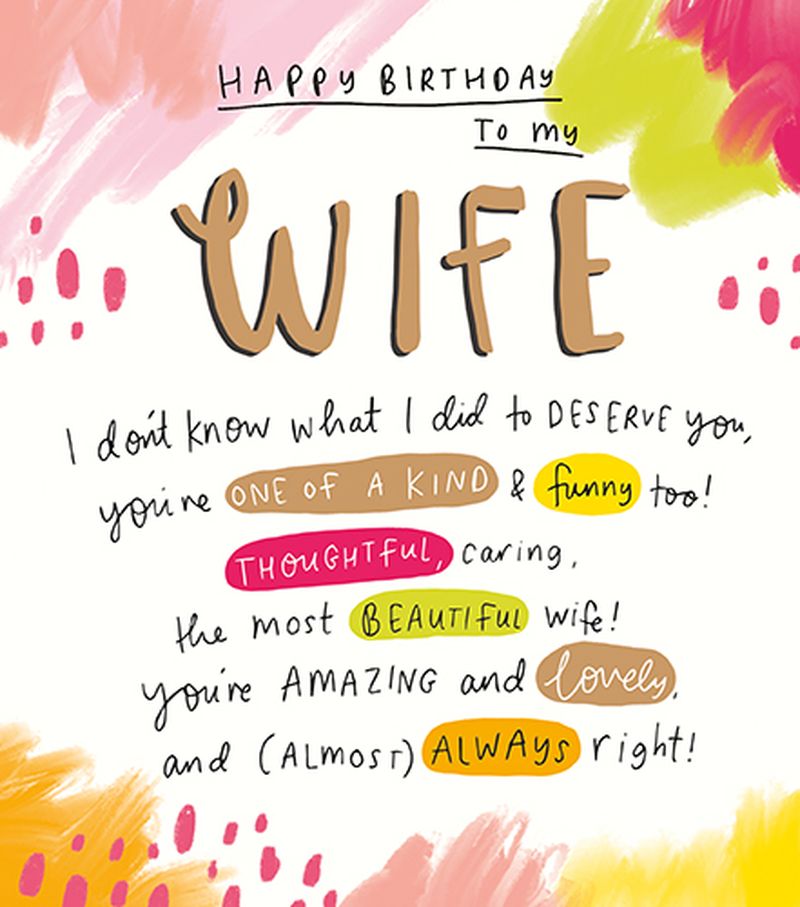 HAPPY BIRTHDAY
To my
WIFE
I don't know what I did to DESERVE you,
you're ONE OF A KIND & funny too!
THOUGHTFUL, caring,
the most BEAUTIFUL wife!
you're AMAZING and lovely,
and (ALMOST) ALWAYS right!